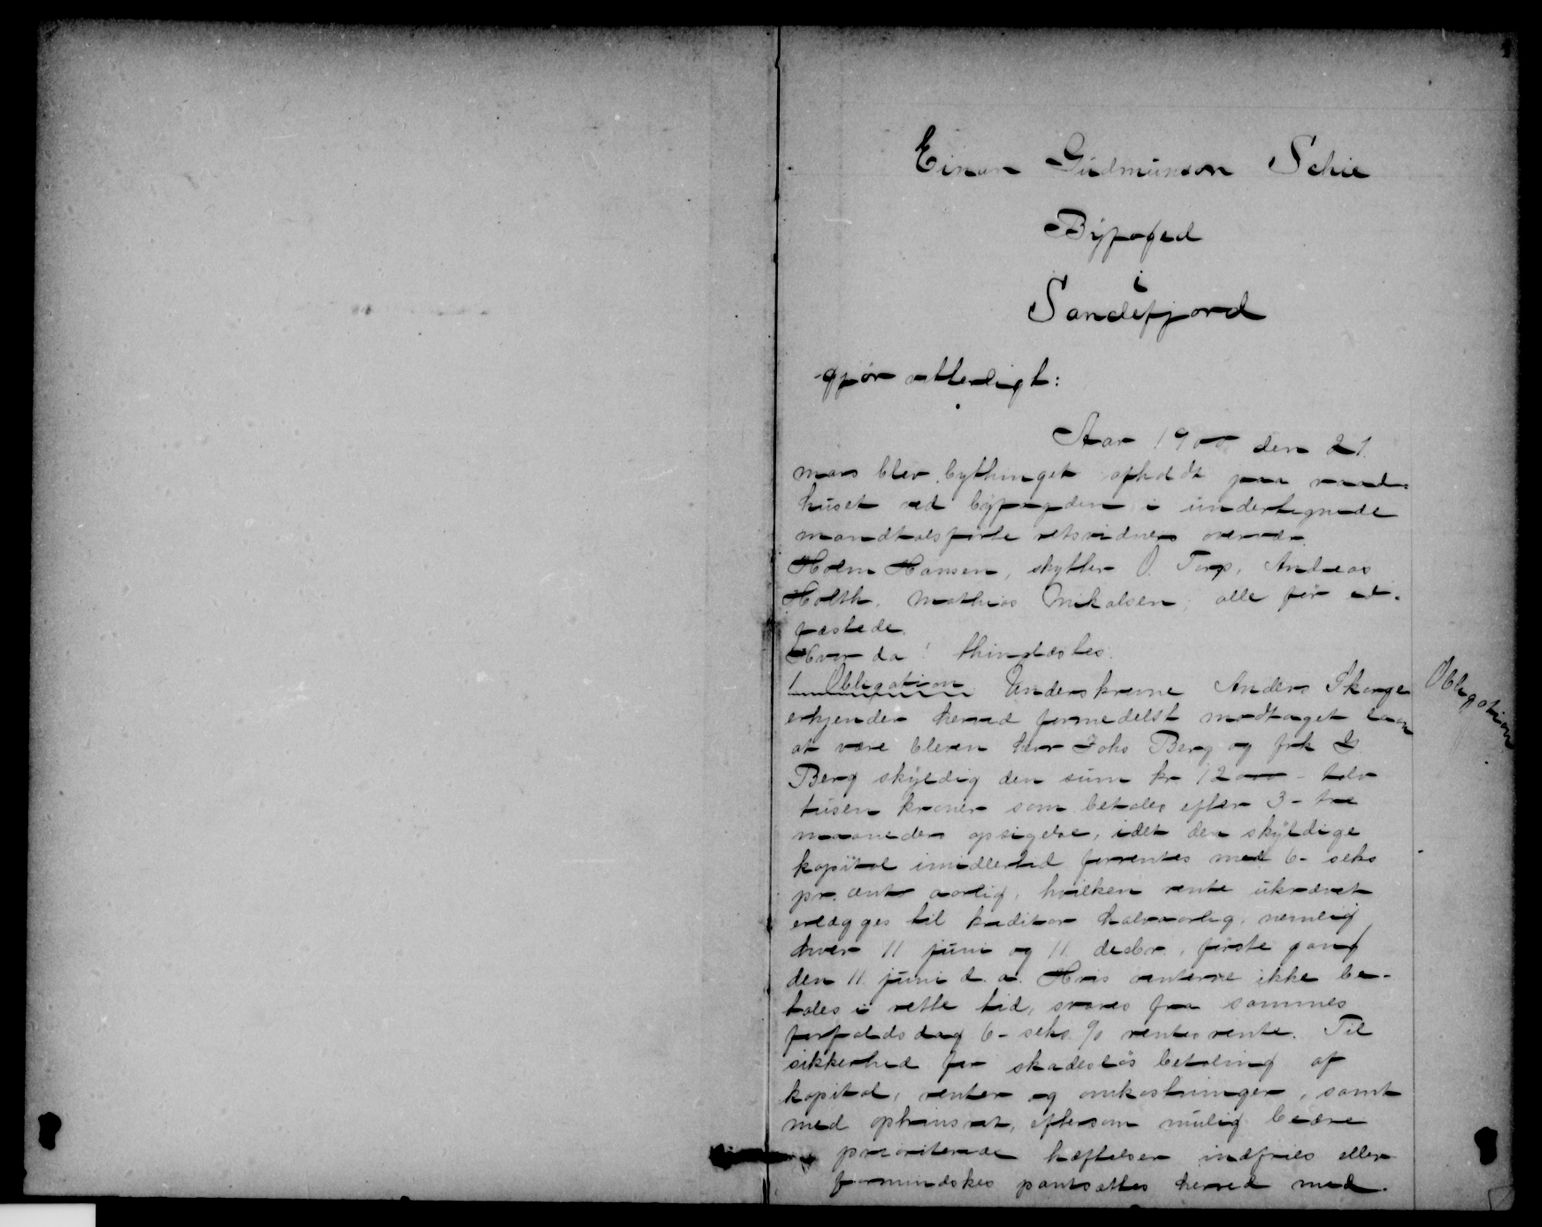 Einar Gudmunson Schie
Byfoged
i
Sandefjord
gjør vitterligt:
Aar 1900 den 21
mars blev bythinget afholdt paa raad-
huset ved byfogden i undertegnede
mandtalsførte retsvidners overvær.
Holm Hansen, skytter O. Torp, Andreas
Holth, Mathias Mikalsen, alle før ed-
fæstede.
Hvor da thinglæstes.
1. Obligation Underskrevne Anders Skorge
Obligation
erkjender herved formedelst modtaget laan
at være bleven herr Johs Berg og frk
Berg skyldig den sum kr 12000 - tolv
tusen kroner som betales efter 3 - tre
maaneders opsigelse, idet den skyldige
kapital imidlertid forrentes med 6 - seks
pr. cent aarlig, hvilken rente ukrævet
erlægges til kreditor halvaarlig, nemlig
hver 11 juni og 11 decbr., første gang
den 11 juni d. a. Hvis renterne ikke be-
tales i rette tid, svares fra sammes
forfaldsdag 6 - seks % rentes rente. Til
sikkerhed for skadesløs betaling af
kapital, renter og omkostninger, samt
med opkrinsret, eftersom mulig bedre
prioriterede hæftelser indfries eller
formindskes pantsættes herved med